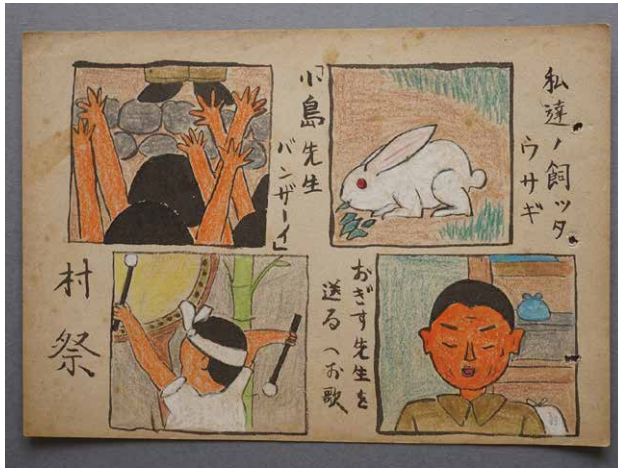 私達ノ飼ッタ
ウサギ
「小島先生
バンザーイ」
おぎす先生を
送るへお歌
村祭